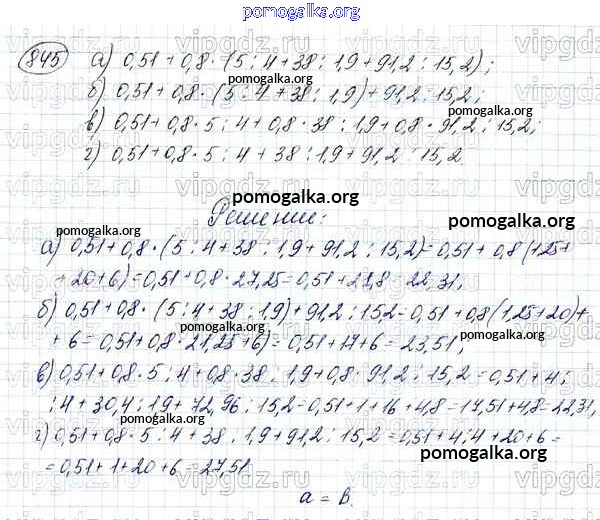 pomogalka.org
845 а) 0,51 + 0,8 · (5 : 4 + 38 : 1,9 + 91,2 : 15,2) ;
pomogalka.org
б) 0,51 + 0,8 · (5 : 4 + 38 : 1,9) + 91,2 : 15,2 ;
pomogalka.org
в) 0,51 + 0,8 · 5 : 4 + 0,8 · 38 : 1,9 + 0,8 · 91,2 : 15,2 ;
г) 0,51 + 0,8 · 5 : 4 + 38 : 1,9 + 91,2 : 15,2
pomogalka.org
Решение:
pomogalka.org
pomogalka.org
а) 0,51 + 0,8 · (5 : 4 + 38 : 1,9 + 91,2 : 15,2) = 0,51 + 0,8 (1,25 +
+ 20 + 6) = 0,51 + 0,8 · 27,25 = 0,51 + 21,8 = 22,31 ;
pomogalka.org
б) 0,51 + 0,8 · (5 : 4 + 38 : 1,9) + 91,2 : 15,2 = 0,51 + 0,8 (1,25 + 20) +
+ 6 = 0,51 + 0,8 · 21,25 + 6) = 0,51 + 17 + 6 = 23,51 ;
pomogalka.org
pomogalka.org
в) 0,51 + 0,8 · 5 : 4 + 0,8 · 38 : 1,9 + 0,8 · 91,2 : 15,2 = 0,51 + 4 :
: 4 + 30,4 : 1,9 + 72,96 : 15,2 = 0,51 + 1 + 16 + 4,8 = 17,51 + 4,8 = 22,31,
pomogalka.org
г) 0,51 + 0,8 · 5 : 4 + 38 : 1,9 + 91,2 : 15,2 = 0,51 + 4 : 4 + 20 + 6 =
pomogalka.org
= 0,51 + 1 + 20 + 6 = 27,51
pomogalka.org
а = в.